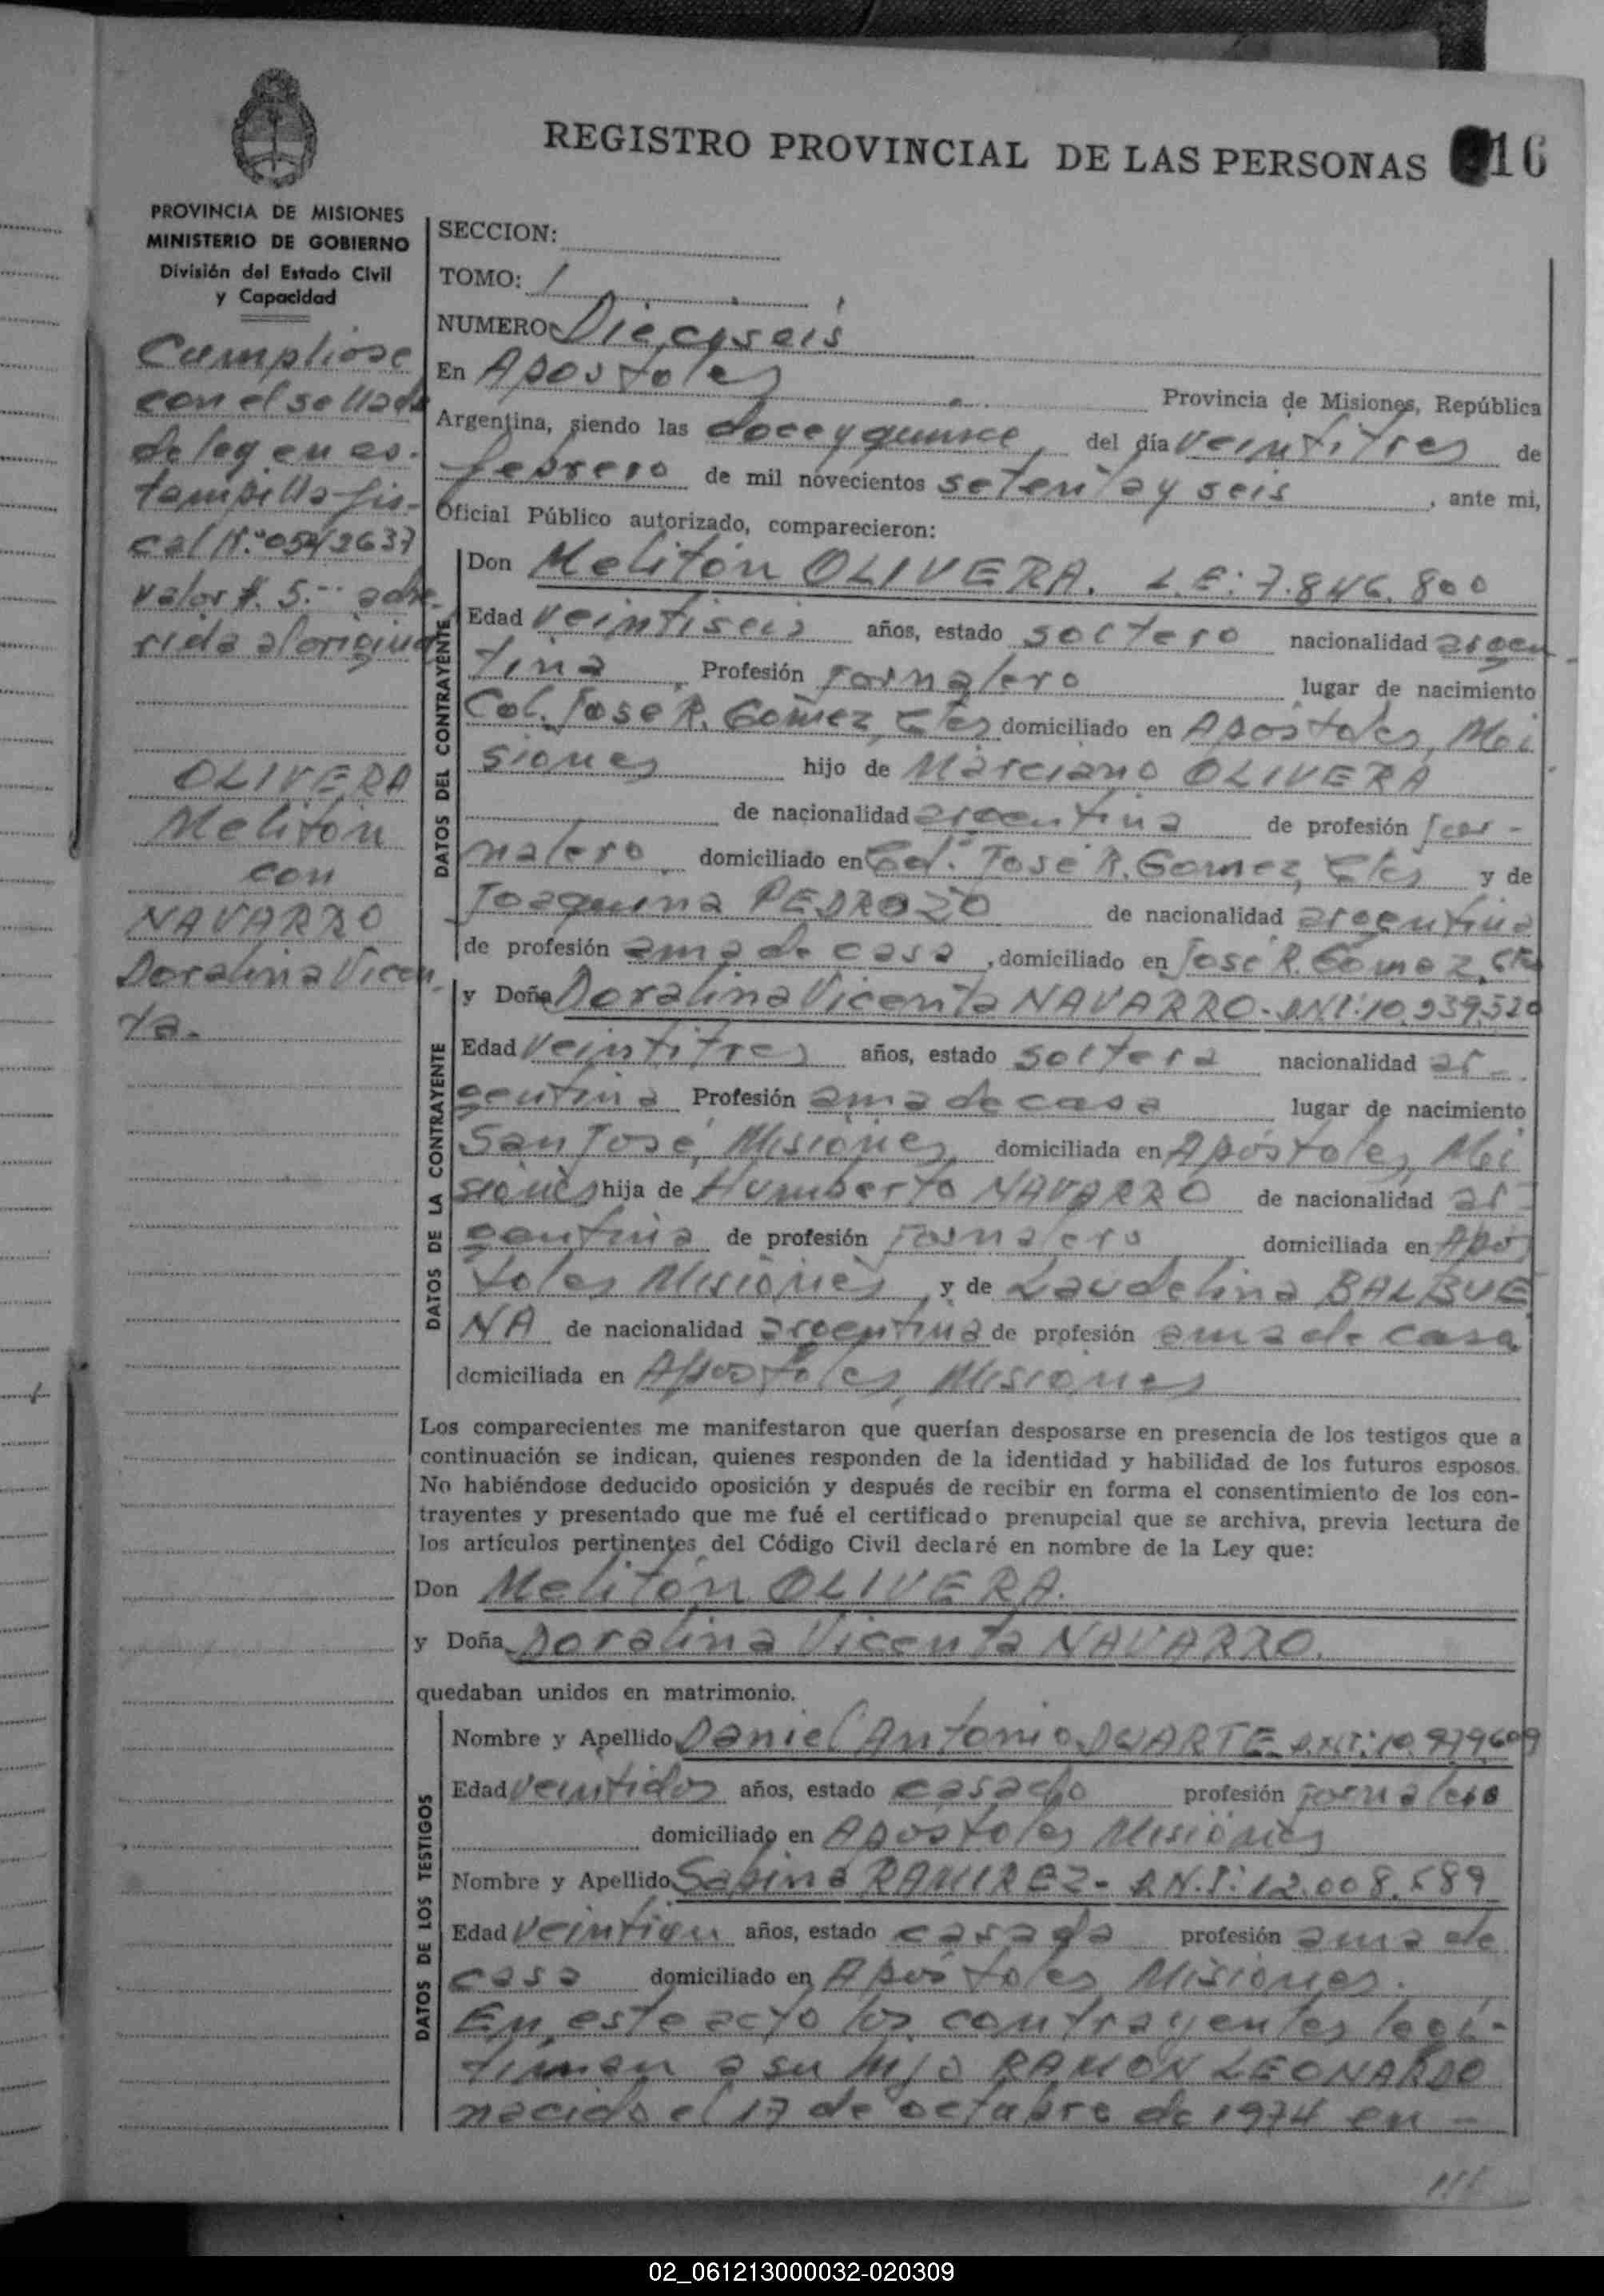 REGISTRO PROVINCIAL DE LAS PERSONAS 16
PROVINCIA DE MISIONES
MINISTERIO DE GOBIERNO
División del Estado Civil
y Capacidad
Cumpliose
con el sellado
de ley en es-
tampilla fis-
cal N.º 0542637
valor $. 5.-- adhe-
rida al original
OLIVERA
Melitón
con
NAVARRO
Doralina Vicen-
ta.-
SECCION:
TOMO: 1
NUMERO: Dieciseis
En Apostoles Provincia de Misiones, República
Argentina, siendo las doce y quince, del día veintitres de
febrero de mil novecientos setenta y seis, ante mi,
Oficial Público autorizado, comparecieron:
DATOS DEL CONTRAYENTE
Don Melitón OLIVERA. L.E: 7.846.800
Edad veintiseis años, estado soltero nacionalidad argen-
tina Profesión Jornalero lugar de nacimiento
Col. José R. Gómez, Ctes domiciliado en Apóstoles, Mi
siones hijo de Marciano OLIVERA
de nacionalidad argentina de profesión jor-
nalero domiciliado en Col. José R. Gomez, Ctes y de
Joaquina PEDROZO de nacionalidad argentina
de profesión ama de casa, domiciliado en José R. Gómez, Ctes
DATOS DE LA CONTRAYENTE
y Doña Doralina Vicenta NAVARRO.- DNI: 10.939.520
Edad veintitres años, estado soltera nacionalidad ar-
gentina Profesión ama de casa lugar de nacimiento
San José, Misiones domiciliada en Apóstoles, Mi
siones hija de Humberto NAVARRO de nacionalidad ar-
gentina de profesión Jornalero domiciliada en Após
toles Misiones, y de Laudelina BALBUE
NA de nacionalidad argentina de profesión ama de casa
domiciliada en Apostoles, Misiones
Los comparecientes me manifestaron que querían desposarse en presencia de los testigos que a
continuación se indican, quienes responden de la identidad y habilidad de los futuros esposos.
No habiéndose deducido oposición y después de recibir en forma el consentimiento de los con-
trayentes y presentado que me fué el certificado prenupcial que se archiva, previa lectura de
los artículos pertinentes del Código Civil declaré en nombre de la Ley que:
Don Melitón OLIVERA.
y Doña Doralina Vicenta NAVARRO.
quedaban unidos en matrimonio.
DATOS DE LOS TESTIGOS
Nombre y Apellido Daniel Antonio DUARTE- D.N.I: 10.979.609
Edad veintidos años, estado casado profesión Jornalero
domiciliado en Apóstoles Misiones
Nombre y Apellido Sabina RAMIREZ- D.N.I: 12.008.589
Edad veintiun años, estado casada profesión ama de
casa domiciliado en Apóstoles Misiones.
En este acto los contrayentes legi-
timan a su hijo RAMON LEONARDO
nacido el 17 de octubre de 1974 en -
02_061213000032-020309